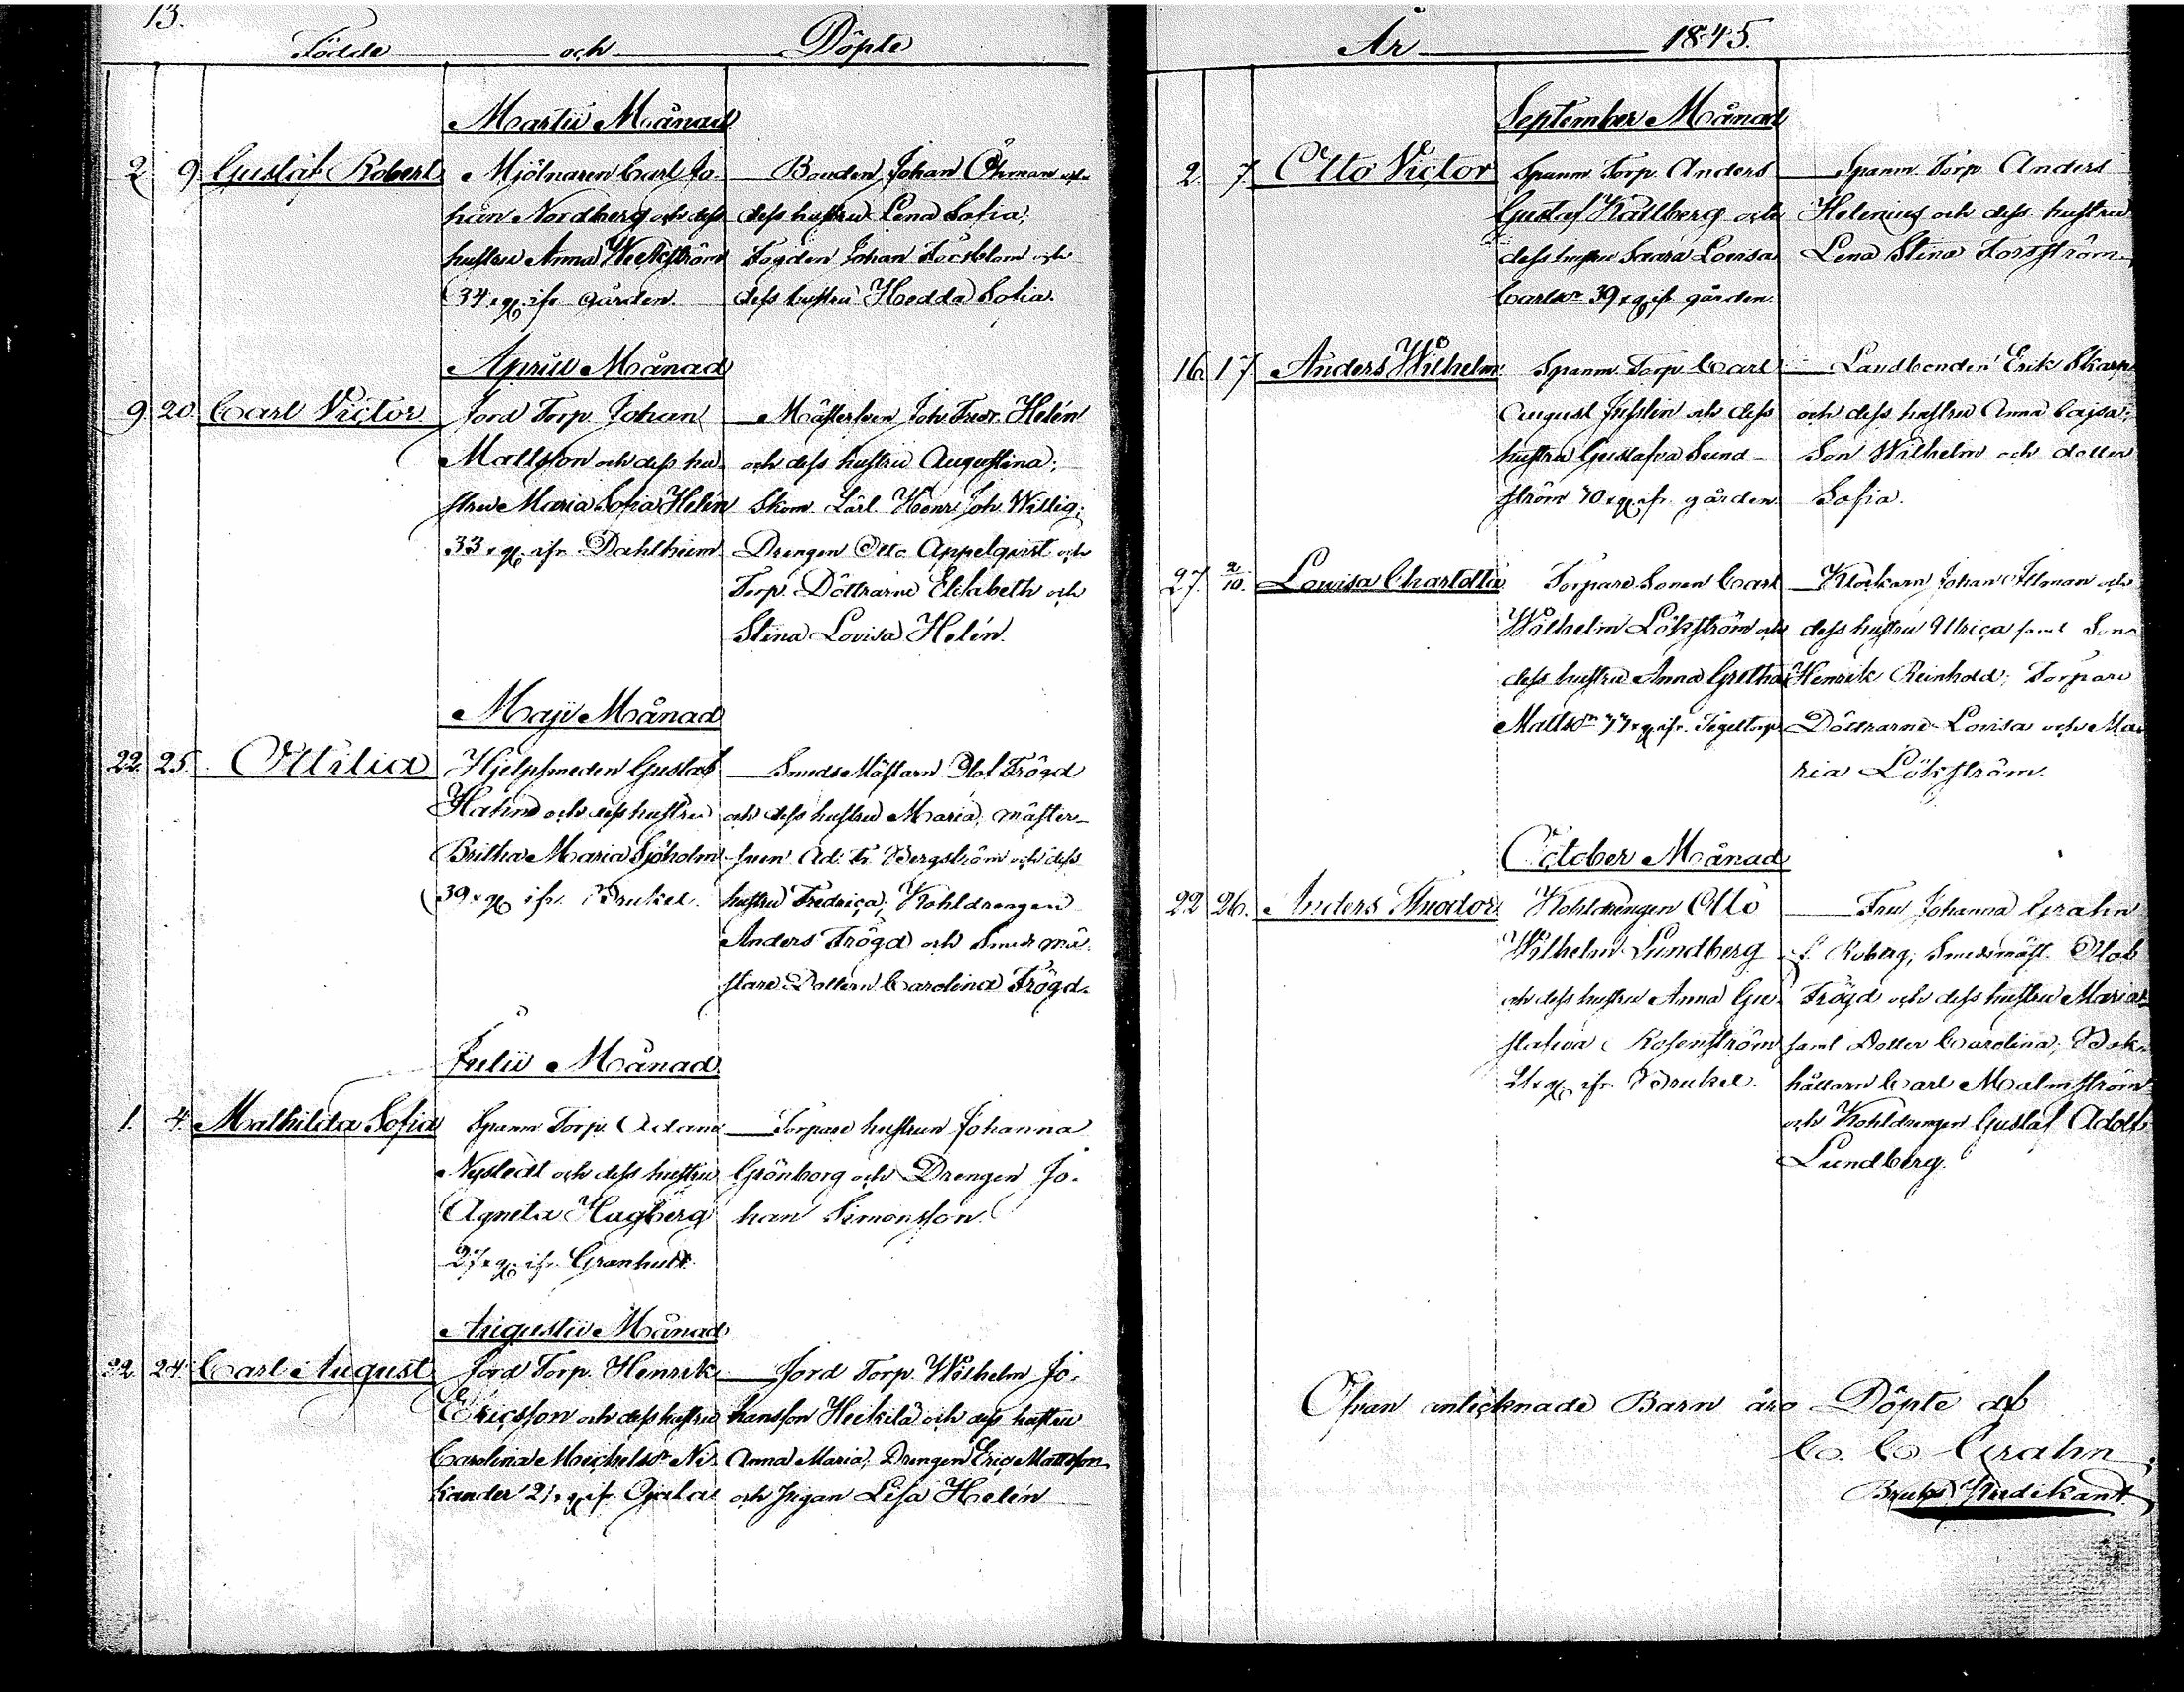 13.
Födde och Döpte
Martii Månad
2. 9. Gustaf Robert Mjölnaren Carl Jo- Bonden Johan Öhman och
han Nordberg och dess dess hustru Lena Sofia;
hustru Anna Weckström Fogden Johan Forsblom och
34. ifr. gården. dess hustru Hedda Sofia.
April Månad
9. 20. Carl Victor. Jord Torp. Johan Mästersven Joh. Fredr. Helén
Mattsson och dess hu- och dess hustru Augustina;
stru Maria Sofia Helén Skom. Lärl. Henr. Joh. Willig;
33. ifr. Dahlheim Drengen Otto Appelqvist och
Torp. Döttrarne Elisabeth och
Stina Lovisa Helén.
Maji Månad
22. 25. Ottilia Hjelpsmeden Gustaf Smeds Mästarn Olof Frögd
Hahn och dess hustru och dess hustru Maria; mäster-
Britha Maria Sjöholm Ad. Fr. Bergström och dess
39. ifr. Bruket. hustru Fredrica; Kohldrengen
Anders Frögd och Smeds mä-
stare Dottern Carolina Frögd.
Julii Månad
1. 4. Mathilda Sofia Spanm. Torp. Adam Torpare hustrun Johanna
Nystedt och dess hustru Grönborg och Drengen Jo-
Agneta Hagberg han Simonsson.
27. ifr. Granhult.
Augustii Månad
22. 24. Carl August Jord Torp. Henrik Jord Torp. Wilhelm Jo-
Ericsson och dess hustru hansson Heikilä och dess hustru
Carolina Michelsdr Ni- Anna Maria; Drengen Eric Mattsson
kander 21. ifr. Ojala och Pigan Lisa Helén
År 1845.
September Månad
2. 7. Otto Victor Spanm. Torp. Anders Spanm. Torp. Anders
Gustaf Källberg och Helenius och dess hustru
dess hustru Saara Lovisa Lena Stina Forsström.
Carlsdr 39. ifr. gården.
16. 17. Anders Wilhelm Spanm. Torp. Carl Landbonden Erik Skarp
August Jusslin och dess och dess hustru Anna Cajsa;
hustru Gustafva Sund- Son Wilhelm och dotter
ström ifr. gården. Sofia.
27. 2/10. Lovisa Charlotta Torpare Sonen Carl Klockarn Johan och
Wilhelm Lökström och dess hustru Ulrica samt Son
dess hustru Anna Gretha Henrik Reinhold; Torpare
Mattsdr ifr. Tegeltorp Döttrarne Lovisa och Ma-
ria Lökström.
October Månad
22. 26. Anders Theodor. Kohldrengen Otto Fru Johanna Grahn
Wilhelm Lundberg f. Roberg; Smedsmäst. Olof
och dess hustru Anna Gu- Frögd och dess hustru Maria
stafva Rosenström samt Dotter Carolina; Bok-
21. ifr. Bruket. hållarn Carl Malmström
och Kohldrengen Gustaf Adolf
Lundberg.
Ofvan antecknade Barn äro Döpte af
C. C. Grahn
Bruks Predikant